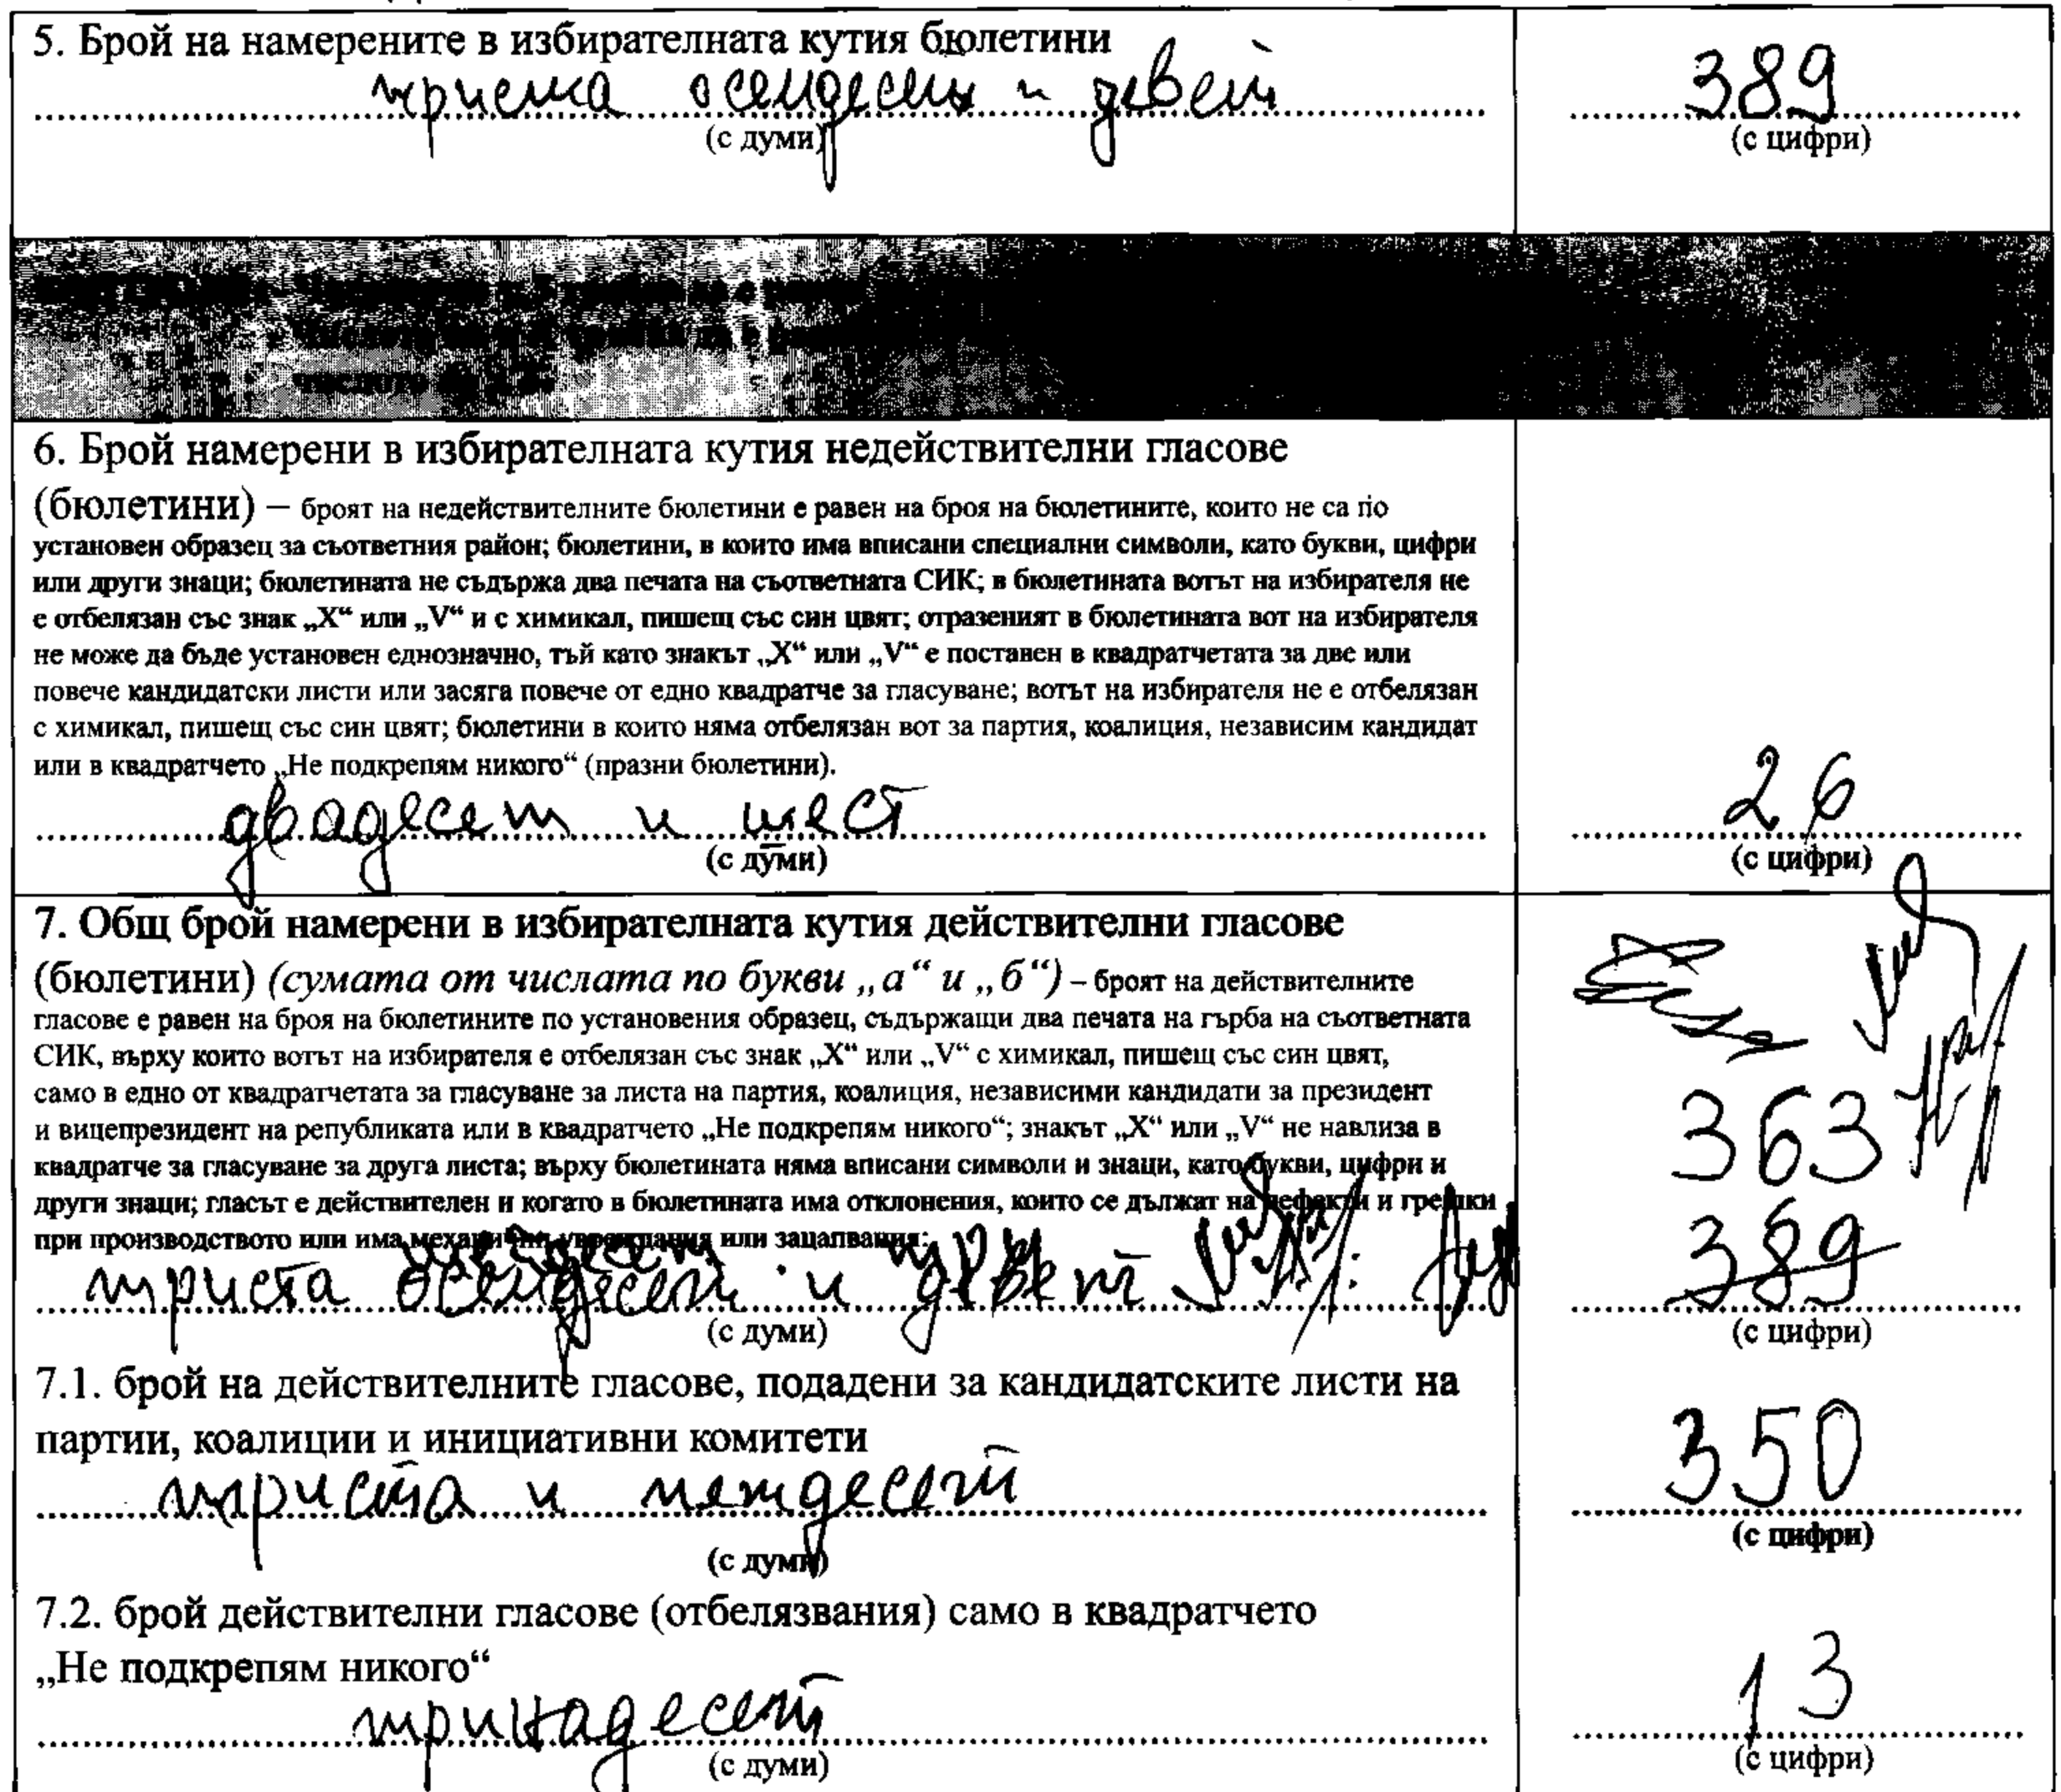 5. Брой на намерените в избирателната кутия бюлетини
триста осемдесет и девет 389
(с думи) (с цифри)
6. Брой намерени в избирателната кутия недействителни гласове
(бюлетини) – броят на недействителните бюлетини е равен на броя на бюлетините, които не са по
установен образец за съответния район; бюлетини, в които има вписани специални символи, като букви, цифри
или други знаци; бюлетината не съдържа два печата на съответната СИК; в бюлетината вотът на избирателя не
е отбелязан със знак „X“ или „V“ и с химикал, пишещ със син цвят; отразеният в бюлетината вот на избирателя
не може да бъде установен еднозначно, тъй като знакът „X“ или „V“ е поставен в квадратчетата за две или
повече кандидатски листи или засяга повече от едно квадратче за гласуване; вотът на избирателя не е отбелязан
с химикал, пишещ със син цвят; бюлетини в които няма отбелязан вот за партия, коалиция, независим кандидат
или в квадратчето „Не подкрепям никого“ (празни бюлетини).
двадесет и шест 26
(с думи) (с цифри)
7. Общ брой намерени в избирателната кутия действителни гласове
(бюлетини) (сумата от числата по букви „а“ и „б“) – броят на действителните
гласове е равен на броя на бюлетините по установения образец, съдържащи два печата на гърба на съответната
СИК, върху които вотът на избирателя е отбелязан със знак „X“ или „V“ с химикал, пишещ със син цвят,
само в едно от квадратчетата за гласуване за листа на партия, коалиция, независими кандидати за президент
и вицепрезидент на републиката или в квадратчето „Не подкрепям никого“; знакът „X“ или „V“ не навлиза в 363
квадратче за гласуване за друга листа; върху бюлетината няма вписани символи и знаци, като букви, цифри и
други знаци; гласът е действителен и когато в бюлетината има отклонения, които се дължат на дефекти и грешки
при производството или има механични увреждания или зацапвания:
шейдесет три
триста осемдесет и девет 389
(с думи) (с цифри)
7.1. брой на действителните гласове, подадени за кандидатските листи на
партии, коалиции и инициативни комитети
триста и петдесет 350
(с думи) (с цифри)
7.2. брой действителни гласове (отбелязвания) само в квадратчето
„Не подкрепям никого“
тринадесет 13
(с думи) (с цифри)